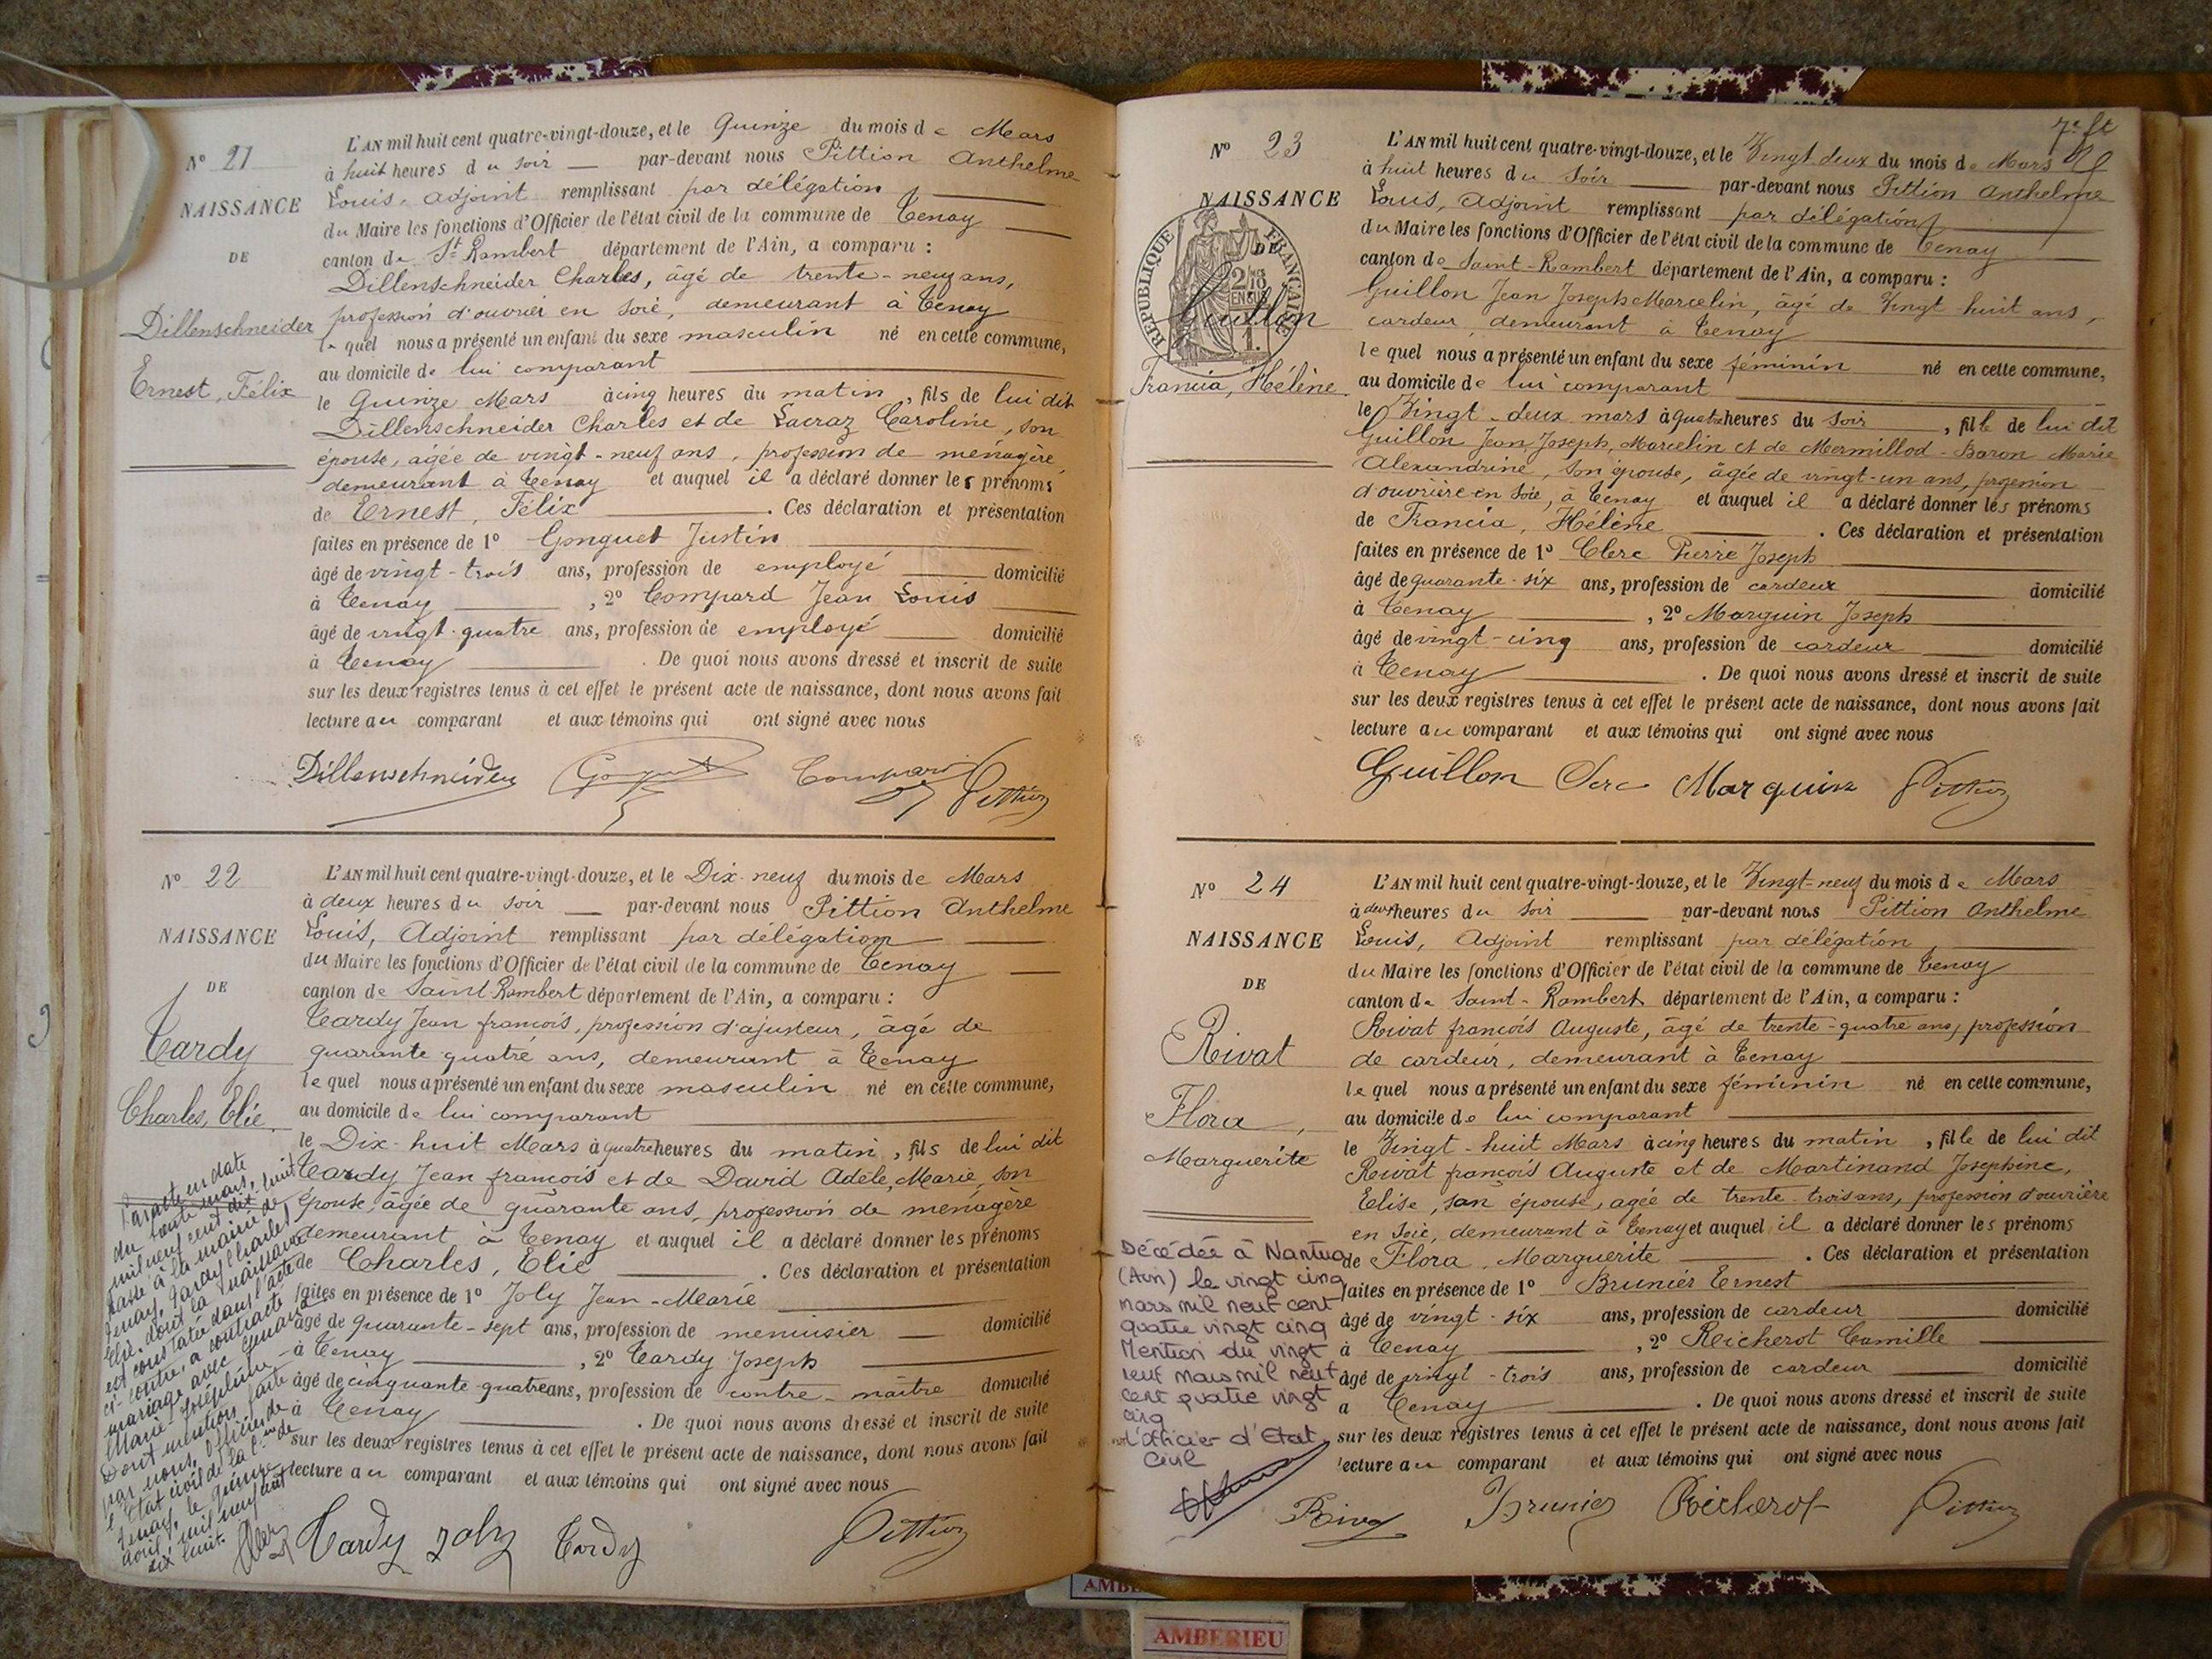 N° 21
NAISSANCE
DE
Dillenschneider
Ernest, Félix
L'AN mil huit cent quatre-vingt-douze, et le Quinze du mois de Mars
à huit heures du soir par-devant nous Pittion Anthelme
Louis, adjoint remplissant par délégation
du Maire les fonctions d'Officier de l'état civil de la commune de Tenay
canton de St Rambert département de l'Ain, a comparu :
Dillenschneider Charles, âgé de trente-neuf ans,
profession d'ouvrier en soie, demeurant à Tenay
lequel nous a présenté un enfant du sexe masculin né en cette commune,
au domicile de lui comparant
le Quinze Mars à cinq heures du matin, fils de lui dit
Dillenschneider Charles et de Lacraz Caroline, son
épouse, agée de vingt-neuf ans, profession de ménagère,
demeurant à Tenay et auquel il a déclaré donner les prénoms
de Ernest, Félix. Ces déclaration et présentation
faites en présence de 1° Gonguet Justin
âgé de vingt-trois ans, profession de employé domicilié
à Tenay, 2° Compard Jean Louis
âgé de vingt-quatre ans, profession de employé domicilié
à Tenay. De quoi nous avons dressé et inscrit de suite
sur les deux registres tenus à cet effet le présent acte de naissance, dont nous avons fait
lecture au comparant et aux témoins qui ont signé avec nous
Dillenschneider Compard Pittion
N° 22
NAISSANCE
DE
Tardy
Charles, Elie.
L'AN mil huit cent quatre-vingt-douze, et le Dix-neuf du mois de Mars
à deux heures du soir par-devant nous Pittion Anthelme
Louis, Adjoint remplissant par délégation
du Maire les fonctions d'Officier de l'état civil de la commune de Tenay
canton de Saint Rambert département de l'Ain, a comparu :
Tardy Jean francois, profession d'ajusteur, âgé de
quarante quatre ans, demeurant à Tenay
lequel nous a présenté un enfant du sexe masculin né en cette commune,
au domicile de lui comparant
le Dix-huit Mars à quatre heures du matin, fils de lui dit
Tardy Jean francois et de David Adèle, Marie, son
épouse, âgée de quarante ans, profession de ménagère
demeurant à Tenay et auquel il a déclaré donner les prénoms
de Charles, Elie. Ces déclaration et présentation
faites en présence de 1° Joly Jean-Marie
âgé de quarante-sept ans, profession de menuisier domicilié
à Tenay, 2° Tardy Joseph
âgé de cinquante quatre ans, profession de contre-maître domicilié
à Tenay. De quoi nous avons dressé et inscrit de suite
sur les deux registres tenus à cet effet le présent acte de naissance, dont nous avons fait
lecture au comparant et aux témoins qui ont signé avec nous
Par acte en date
du trente mars,
mil neuf cent dix-huit
passé à la mairie de
Tenay, Tardy Charles
Elie, dont la naissance
est constatée dans l'acte
ci-contre, a contracté
mariage avec
Marie Joséphine
Dont mention faite
par nous, officier de
l'Etat civil de la
Tenay, le quinze
avril mil neuf cent
dix huit.
Tardy Joly Tardy Pittion
7e ft
N° 23
NAISSANCE
DE
REPUBLIQUE FRANCAISE
Guillon
Francia, Hélène
L'AN mil huit cent quatre-vingt-douze, et le Vingt deux du mois de Mars
à huit heures du soir par-devant nous Pittion Anthelme
Louis, adjoint remplissant par délégation
du Maire les fonctions d'Officier de l'état civil de la commune de Tenay
canton de Saint-Rambert département de l'Ain, a comparu :
Guillon Jean Joseph Marcelin, âgé de Vingt huit ans,
cardeur, demeurant à Tenay
lequel nous a présenté un enfant du sexe féminin né en cette commune,
au domicile de lui comparant
le Vingt-deux mars à quatre heures du soir, fille de lui dit
Guillon Jean, Joseph, Marcelin et de Mermillod-Baron Marie
Alexandrine, son épouse, âgée de vingt-un ans, profession
d'ouvrière en soie, à Tenay et auquel il a déclaré donner les prénoms
de Francia, Hélène. Ces déclaration et présentation
faites en présence de 1° Clerc Pierre Joseph
âgé de quarante-six ans, profession de cardeur domicilié
à Tenay, 2° Marguin Joseph
âgé de vingt-cinq ans, profession de cardeur domicilié
à Tenay. De quoi nous avons dressé et inscrit de suite
sur les deux registres tenus à cet effet le présent acte de naissance, dont nous avons fait
lecture au comparant et aux témoins qui ont signé avec nous
Guillon Clerc Marguin Pittion
N° 24
NAISSANCE
DE
Rivat
Flora,
Marguerite
L'AN mil huit cent quatre-vingt-douze, et le Vingt-neuf du mois de Mars
à deux heures du soir par-devant nous Pittion Anthelme
Louis, Adjoint remplissant par délégation,
du Maire les fonctions d'Officier de l'état civil de la commune de Tenay
canton de Saint-Rambert département de l'Ain, a comparu :
Rivat francois Auguste, âgé de trente-quatre ans, profession
de cardeur, demeurant à Tenay
lequel nous a présenté un enfant du sexe féminin né en cette commune,
au domicile de lui comparant
le Vingt-huit Mars à cinq heures du matin, fille de lui dit
Rivat francois Auguste et de Martinand Josephine,
Elise, son épouse, agée de trente-trois ans, profession d'ouvrière
en soie, demeurant à Tenay et auquel il a déclaré donner les prénoms
de Flora, Marguerite. Ces déclaration et présentation
faites en présence de 1° Brunier Ernest
âgé de vingt-six ans, profession de cardeur domicilié
à Tenay, 2° Richerot Camille
âgé de vingt-trois ans, profession de cardeur domicilié
a Tenay. De quoi nous avons dressé et inscrit de suite
sur les deux registres tenus à cet effet le présent acte de naissance, dont nous avons fait
lecture au comparant et aux témoins qui ont signé avec nous
Décédée à Nantua
(Ain) le vingt cinq
mars mil neuf cent
quatre vingt cinq
Mention du vingt
neuf mars mil neuf
cent quatre vingt
cinq
L'officier d'Etat
Civil
Rivat Brunier Richerot Pittion
AMBERIEU